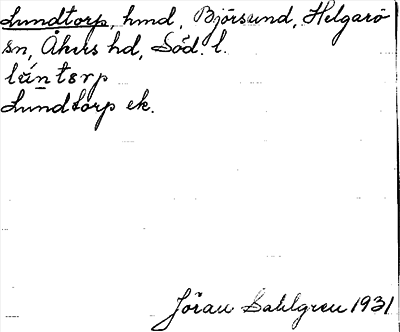 Lundtorp, hmd, Björsund, Helgarö
sn, Åkers hd, Söd. l.
lún̲tɘrp
Lundtorp ek.
Jöran Sahlgren 1931